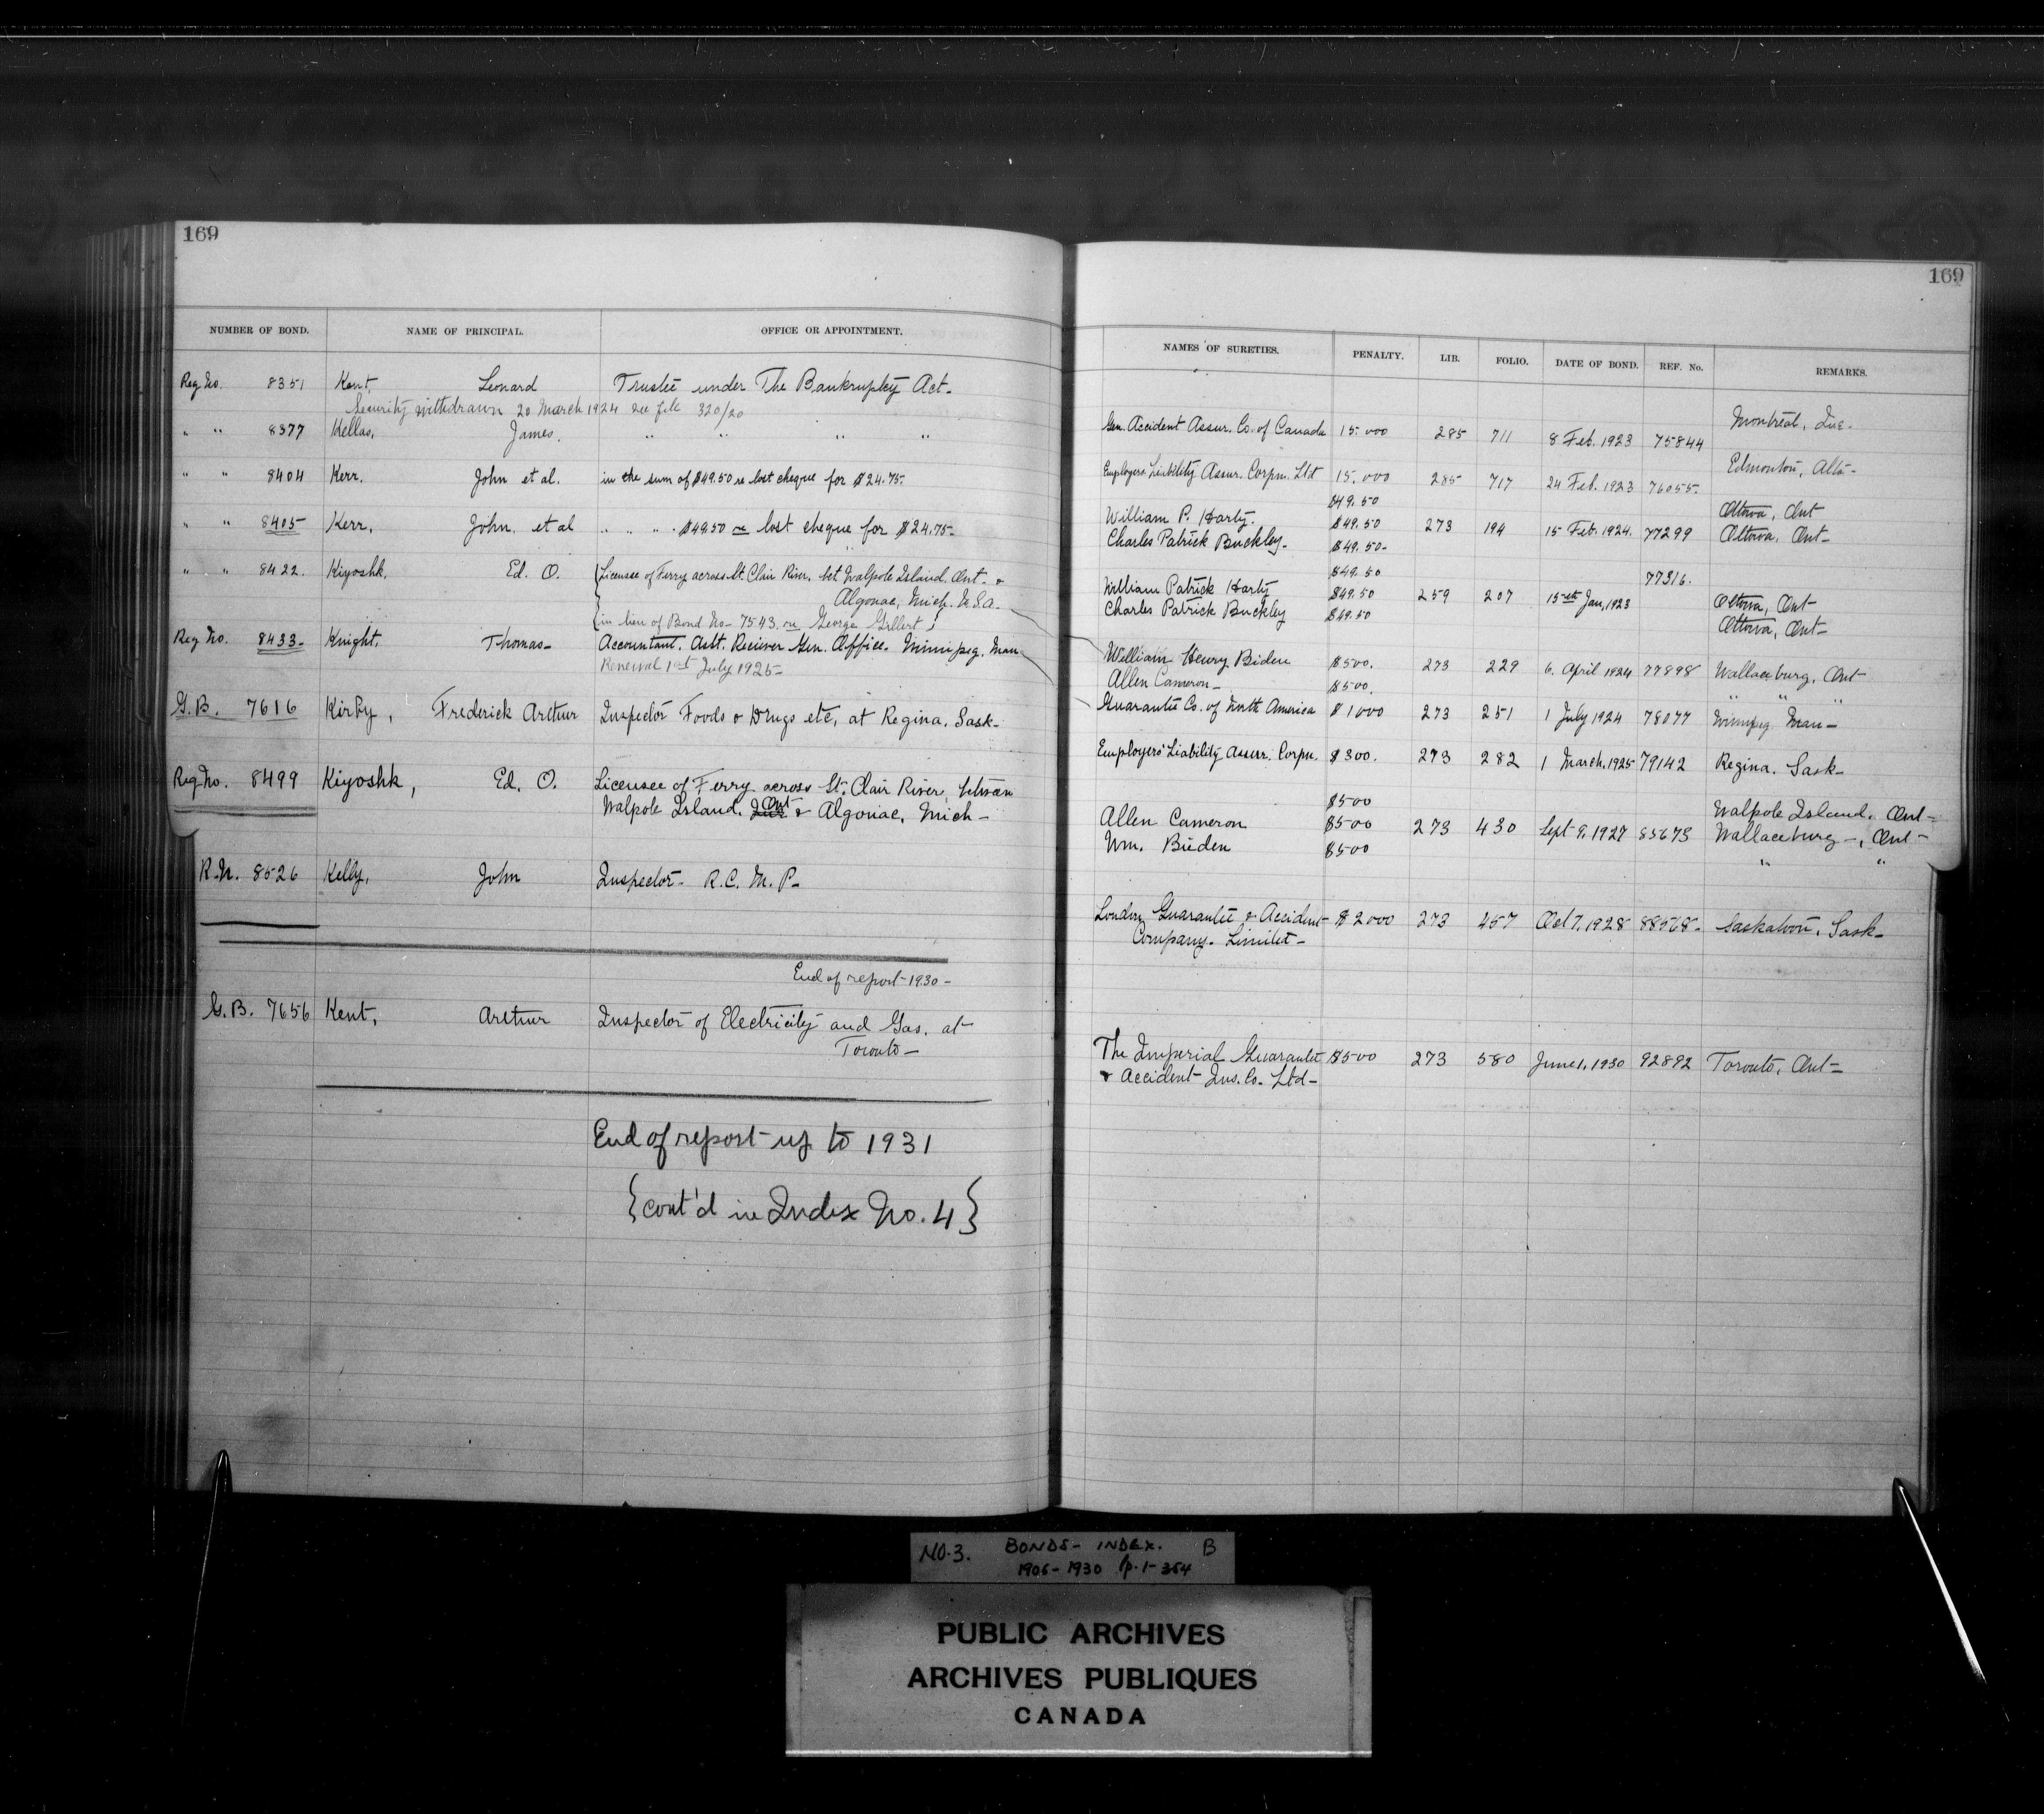 169
NUMBER OF BOND. NAME OF PRINCIPAL. OFFICE OR APPOINTMENT.
Reg No. 8351 Kent, Leonard Trustee under The Bankruptcy Act-
Security withdrawn 20 March 1924 see file 320/20
" " 8377 Kellas, James. " " " "
" " 8404 Kerr. John et al. in the sum of $49.50 re lost cheque for $24.75.
" " 8405 Kerr, John. et al " " " $49.50 re lost cheque for $24.75-
" " 8422. Kiyoshk, Ed. O. {Licensee of Ferry across St. Clair River, bet Walpole Island. Ont. &
Algonac, Mich. U.S.A.
{in lieu of Bond No- 7543 re George Gilbert}
Reg No. 8433- Knight, Thomas- Accountant. Asst. Receiver Gen. Office. Winnipeg. Man
Renewal 1st July 1925-
G.B. 7616 Kirby, Frederick Arthur Inspector Foods & Drugs etc, at Regina, Sask-
Reg No. 8499 Kiyoshk, Ed. O. Licensee of Ferry across St. Clair River, between
Walpole Island, Ont & Algonac, Mich-
R.N. 8526 Kelly, John Inspector- R.C.M.P-
End of report-1930-
G.B. 7656 Kent, Arthur Inspector of Electricity and Gas. at
Toronto-
End of report up to 1931
{cont'd in Index No. 4}
169
NAMES OF SURETIES. PENALTY. LIB. FOLIO. DATE OF BOND. REF. No. REMARKS.
Gen. Accident Assur. Co. of Canada 15.000 285 711 8 Feb. 1923 75844 Montreal, Que.
Employers Liability Assur. Corpn. Ltd 15.000 285 717 24 Feb. 1923 76055. Edmonton, Alta-
$49.50 Ottawa, Ont
William P. Harty. $49.50 273 194 15 Feb. 1924. 77299 Ottawa, Ont-
Charles Patrick Buckley- $49.50-
$49.50 77316.
William Patrick Harty $49.50 259 207 15th Jan, 1923 Ottawa, Ont-
Charles Patrick Buckley $49.50 Ottawa, Ont-
William Henry Biden $500. 273 229 6. April 1924 77898 Wallaceburg, Ont-
Allen Cameron- $500. " " "
Guarantee Co. of North America $1000 273 251 1 July 1924 78077 Winnipeg Man-
Employers' Liability Assur. Corpn. $300. 273 282 1 March, 1925 79142 Regina. Sask-
$500 Walpole Island. Ont-
Allen Cameron $500 273 430 Sept 9, 1927 85673 Wallaceburg-, Ont-
Wm. Bieden $500 " "
London Guarantee & Accident $2000 273 457 Oct 7, 1928 88568- Saskatoon, Sask-
Company- Limited-
The Imperial Guarantee $500 273 580 June 1, 1930 92892 Toronto, Ont-
& Accident Ins. Co. Ltd-
NO.3. BONDS- INDEX. B
1906-1930 p.1-354
PUBLIC ARCHIVES
ARCHIVES PUBLIQUES
CANADA